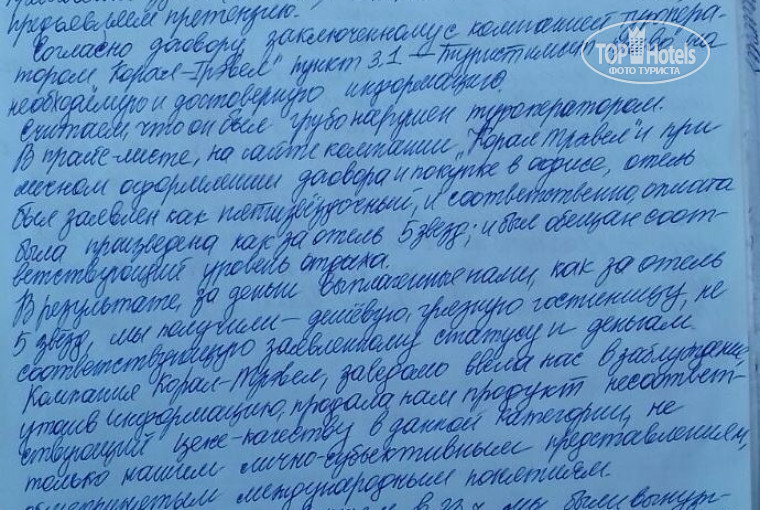 предъявляем претензию.
Согласно договору заключенному с компанией туропера-
тором "Корал-Трэвел" пункт 3.1 – турист имеет право на
необходимую и достоверную информацию.
Считаем, что он был грубо нарушен туроператором.
В прайс-листе, на сайте компании "Корал Трэвел" и при
личном оформлении договора и покупке в офисе, отель
был заявлен как пятизвёздочный, и соответственно, оплата
была произведена как за отель 5 звезд; и был обещан соот-
ветствующий уровень отдыха.
В результате, за деньги выплаченные нами, как за отель
5 звёзд, мы получили – дешёвую, грязную гостиницу, не
соответствующую заявленному статусу и деньгам.
Компания Корал-Трэвел, заведомо ввела нас в заблуждение,
утаив информацию, продала нам продукт несоответ-
ствующий цене-качеству в данной категории, не
только нашим лично-субъективным представлениям,
общепринятым международным понятиям.
в 23 мы были вынуж-
TOP Hotels
ФОТО ТУРИСТА